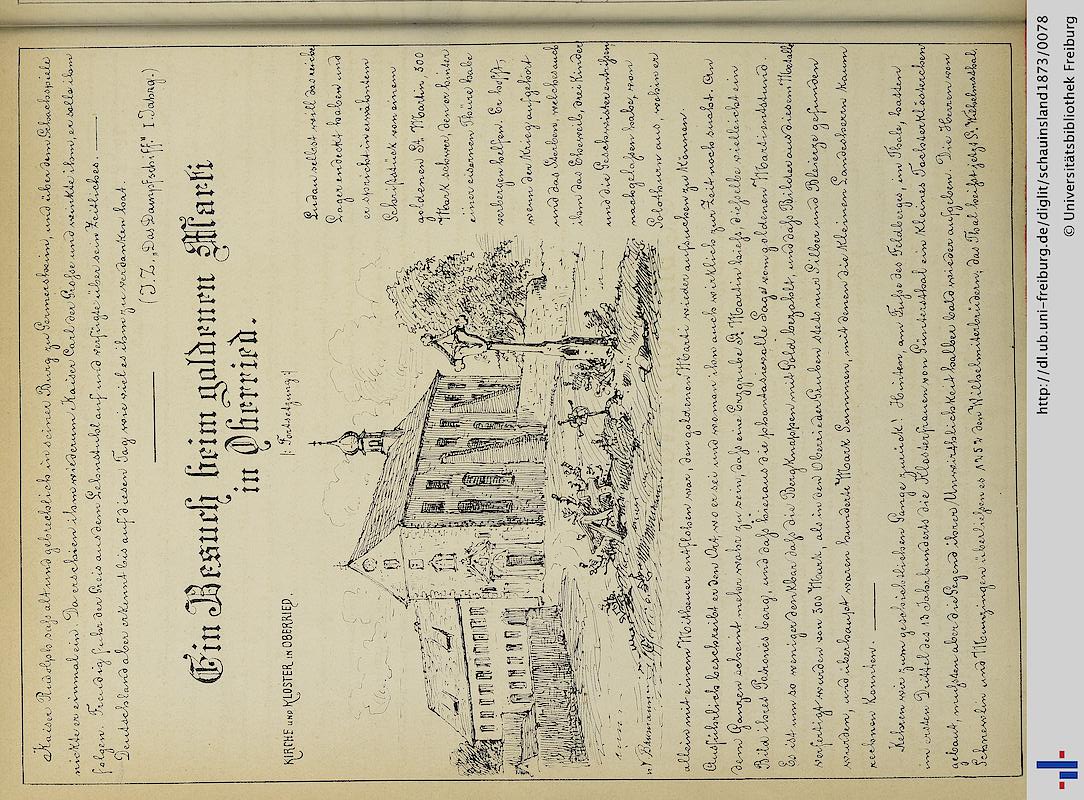 Kaiser Rudolph saß alt und gebrechlich in seiner Burg zu Germersheim, und über dem Schachspiele
nickte er einmal ein. Da erschien ihm wiederum Kaiser Carl der Große und winkte ihm, er solle ihm
folgen. Freudig fuhr der Greis aus dem Lehnstuhl auf und verfügte über sein Zeitliches.
Deutschland aber erkennt bis auf diesen Tag, wie viel es ihm zu verdanken hat.
(J. Z. „Das Dampfschiff" I. Jahrg.)
Ein Besuch beim goldenen Marti
in Oberried.
(: Fortsetzung:)
KIRCHE UND KLOSTER IN OBERRIED.
Lugo selbst will das reiche
Lager entdeckt haben und
er spricht in erwähntem
Schriftstück von einem
goldenen St. Martin, 300
Mark schwer, den er hinter
einer eisernen Thüre habe
verbergen helfen. Er hofft,
wenn der Krieg aufgehört
und das Sterben, welches auch
ihm das Eheweib, drei Kinder
und die Geschwister entrissen
nachgelassen habe, von
Solothurn aus, wohin er
allein mit einem Mithauer entflohen war, den goldenen Marti wieder aufsuchen zu können.
Ausführlich beschreibt er den Ort, wo er sei und wo man ihn auch wirklich zur Zeit noch sucht. An
dem Ganzen scheint mehr wahr zu sein, daß eine Erzgrube St. Martin hieß, dieselbe vielleicht ein
Bild ihres Patrones barg, und daß hieraus die phantasievolle Sage vom goldenen Marti entstund.
Es ist um so weniger denkbar daß die Bergknappen mit Gold bezahlt, und daß Bilder aus diesem Metalle
verfertigt wurden von 300 Mark, als in den Oberrieder Gruben stets nur Silber und Bleierze gefunden
wurden, und überhaupt waren hunderte Mark Summen, mit denen die kleinen Landesherrn kaum
rechnen konnten.
Kehren wir zum geschichtlichen Gange zurück! Hinten, am Fuße des Feldberges, im Thale, hatten
im ersten Drittel des 13. Jahrhunderts die Klosterfrauen von Günterstal ein kleines Tochterklösterchen
gebaut, mußten aber die Gegend ihrer Unwirthlichkeit halber bald wieder aufgeben. Die Herren von
Schnewlin und Munzingen überließen es 1252 den Wilhelmiterbrüdern, das Thal heißt jetzt St. Wilhelmsthal,
http://dl.ub.uni-freiburg.de/diglit/schauinsland1873/0078
© Universitätsbibliothek Freiburg